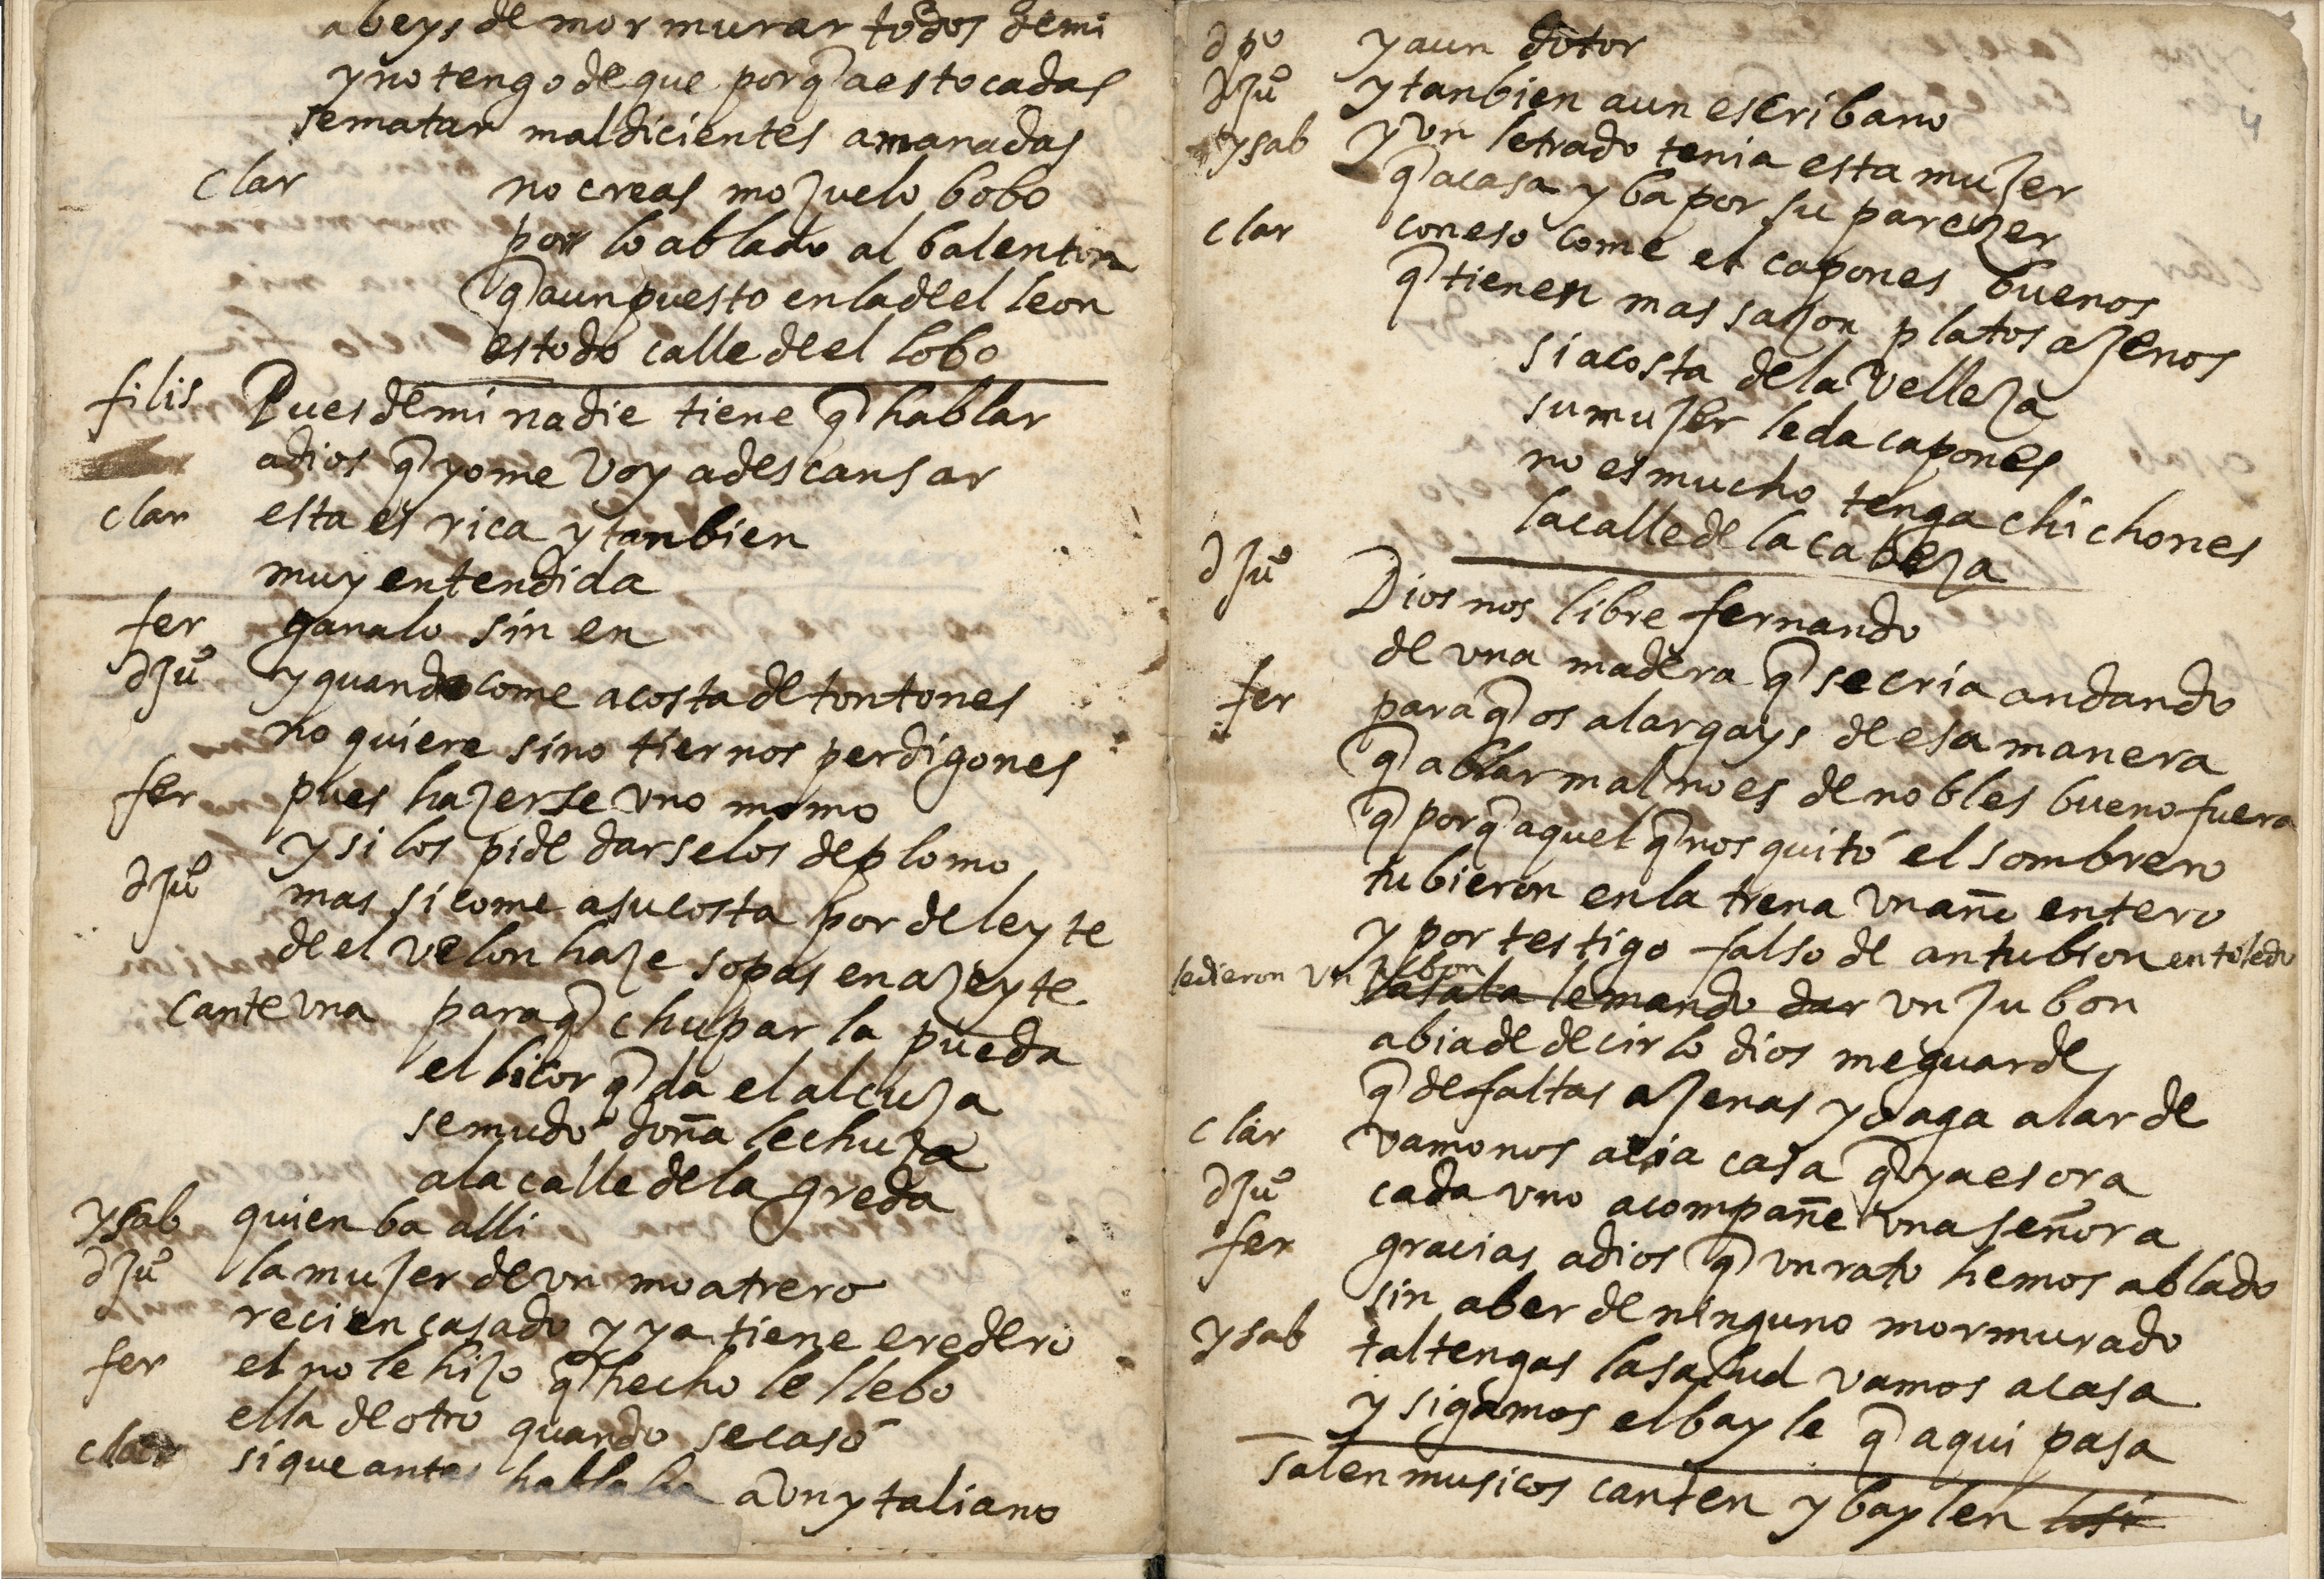 abeys de mormurar todos demi
y no tengo de que porq̃ a estocadas
se matan maldicientes a manadas
clar no creas mozuelo bobo
por lo ablado al balenton
q̃ aun puesto en la de el leon
es todo calle de el lobo
filis Pues de mi nadie tiene q̃ hablar
adios q̃ yo me voy a descansar
clar esta es rica y tanbien
muy entendida
fer ganalo sin en
d Juº y quando come a costa de tontones
no quiere sino tiernos perdigones
fer pues hazerse uno momo
y si los pide darselos de plomo
d Juº mas si come a su costa por deleyte
de el velon haze sopas en azeyte
cante una para q̃ chupar la pueda
el licor q̃ da el alcuza
se mudó doña lechuza
a la calle de la greda
ysab quien ba alli
d Juº la muzer de un moatrero
recien casado y ya tiene eredero
fer el no le hizo q̃ hecho le llebo
ella de otro quando se casó
clar si que antes hablaba a un ytaliano
4
d pº y aun dotor
d Juº y tanbien a un escribano
ysab y un letrado tenia esta muzer
q̃ a casa yba por su parezer
clar con eso come el capones buenos
q̃ tienen mas sazon platos azenos
si a costa de la velleza
su muzer le da capones
no es mucho tenga chichones
la calle de la cabeza
d Juº Dios nos libre fernando
de una madera q̃ se cria andando
fer para q̃ os alargays de esa manera
q̃ ablar mal no es de nobles bueno fuera
q̃ porq̃ aquel q̃ nos quitó el sombrero
tubieron en la trena un año entero
y por testigo falso de antubion en toledo
ledieron un jubon la sala le mando dar un jubon
abia de decirlo dios me guarde
q̃ de faltas azenas yo aga alarde
clar vamonos acia casa q̃ ya es ora
d Juº cada uno acompañe una señora
fer gracias, adios q̃ un rato hemos ablado
sin aber de ninguno mormurado
ysab tal tengas la salud vamos a casa
y sigamos el bayle q̃ aqui pasa
salen musicos canten y baylen